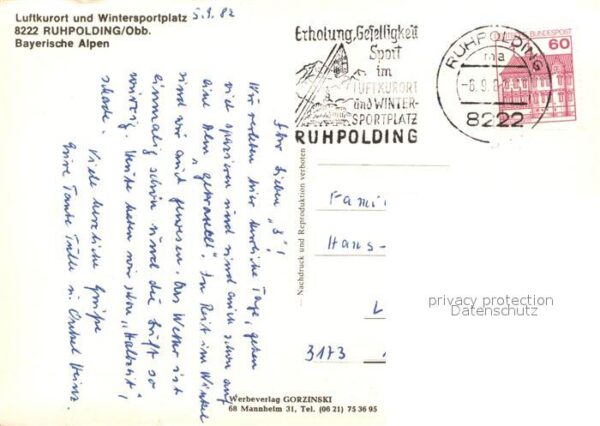 Luftkurort und Wintersportplatz
8222 RUHPOLDING/Obb.
Bayerische Alpen
5.9.82
Ihr lieben "3"!
Wir verleben hier herrliche Tage, gehen
viel spazieren und sind auch schon auf
eine Alm "gekraxelt". In Reit im Winkel
sind wir auch gewesen. Das Wetter ist
einmalig schön und die Luft so
würzig. Heute haben wir schon "Halbzeit"!
schade. Viele herzliche Grüße
Eure Tante Tilli u. Onkel Heinz.
Erholung, Geselligkeit
Sport
im
LUFTKURORT
und WINTER-
SPORTPLATZ
RUHPOLDING
RUHPOLDING
ma
-6.9.8
8222
BUNDESPOST
60
Nachdruck und Reproduktion verboten
Fami
Hans-
L
3173
privacy protection
Datenschutz
Werbeverlag GORZINSKI
68 Mannheim 31, Tel. (06 21) 75 36 95